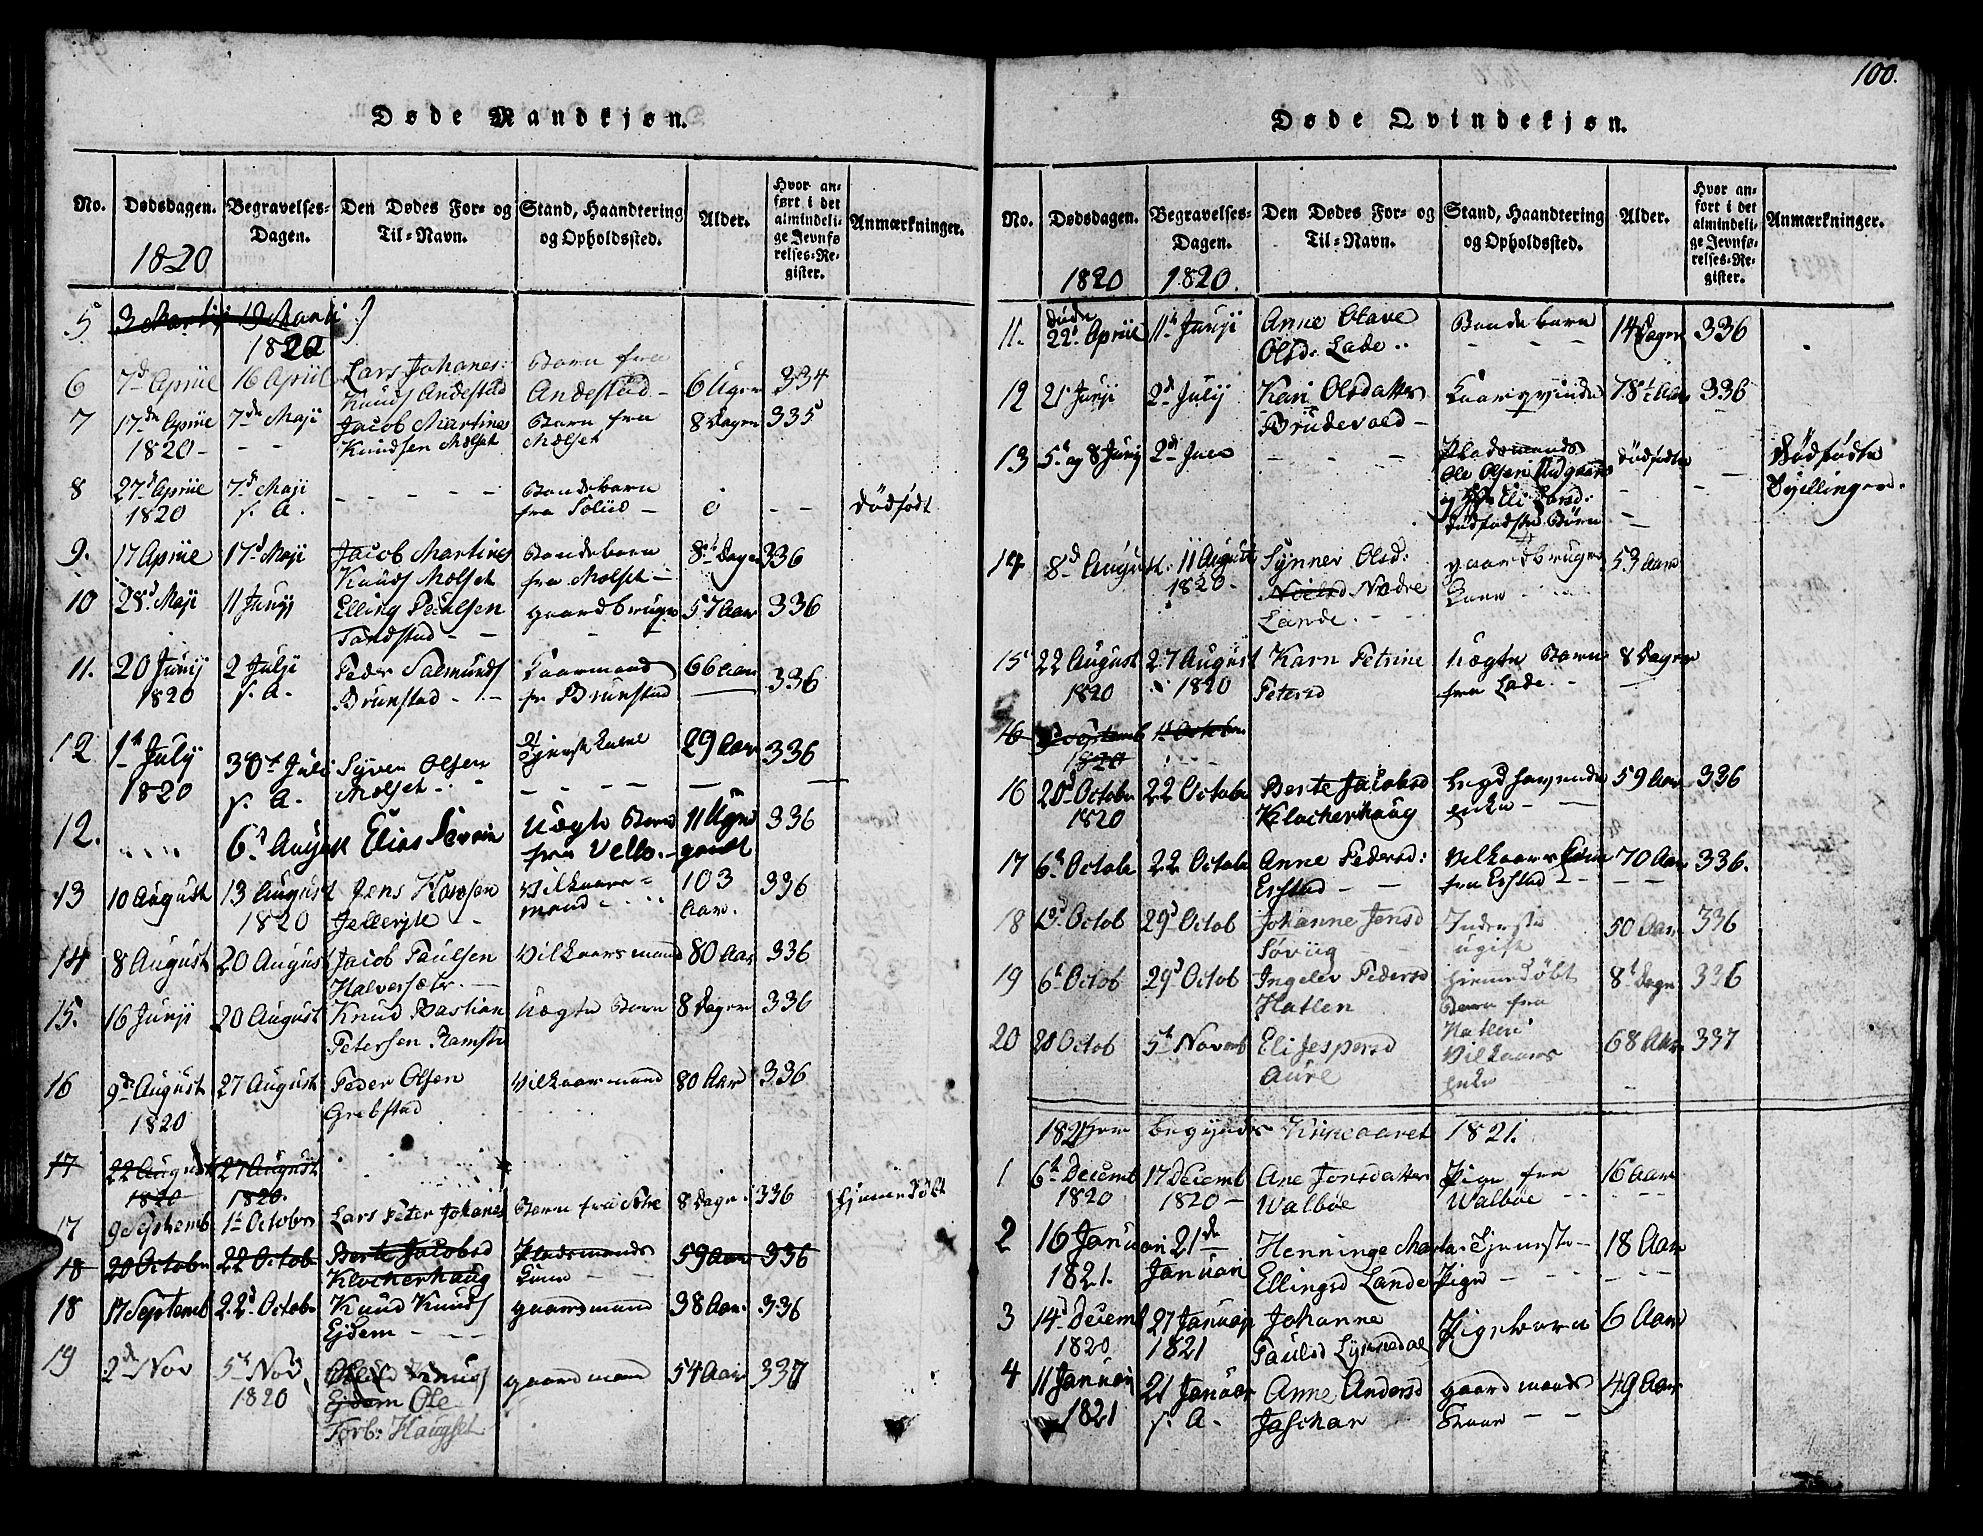 100.
Døde Mandkjøn.
No. Dødsdagen. Begravelses-Dagen. Den Dødes For- og Til-Navn. Stand, Haandtering og Opholdssted. Alder. Hvor anført i det almindelige Jevnførelses-Register. Anmærkninger.
1820
5 3 Martij 19 Martij
1820
6 7d Apriil 16 Apriil Lars Johanes: Barn fra
Knuds Andestad Andestad - 6 Uger 334
7 17de Apriil 7de Maji Jacob Martines Barn fra 8 Dager 335
1820 - - - Knudsen Molset Molset
8 27d Apriil 7d Maji - - - - - Bondebarn
1820 s. A. fra - Dødfødt
9. 17 Apriil 17d Maji Jacob Martines Bondebarn 8te Dage 336
Knuds Molset fra Molset -
10 28d Maji 11 Junij Elling Paulsen gaardbruger 57 Aar 336
Tandstad - -
11. 20 Junij 2 Julji Peder Salmunds Kaarmand 66 Aar 336
1820 s. A. Brunstad - - fr Brunstad
12 1te July 30te Juli Siver Olsen Tjeneste Karl 29 Aar 336
1820 s. A. Molset - - - -
12. . . . . 6d August Elias Uægte Barn 11 Uger 336
fra Velle - gammelt
13 10 August 13 August Jens Hansen Vilkaars- 103 336
1820 mand - Aar.
14 8 August 20 August Jacob Paulsen Vilkaarsmand 80 Aar 336
Halversæter. -
15. 16 Junji 20 August Knud Bastian Uægte Barn 8 Dager 336
Petersen Ramst
16 9de August 27 August Peder Olsen Vilkaarsmand 80 Aar 336
1820 Grebstad
17 22 August 27 August
1820 1820.
17 9 Septemb 1te October Lars Peter Johanes Barn fra 8 Dage 336 hjemmedøbt
18 20 Octobr 22 Octobr Berte Jacobsd Pladsmands 59 Aar 336
Klocherhaug Kone - -
18 17 Septemb 22d Octobr Knud Knuds gaardmand 38 Aar. 336
Ejdem - - -
19 2de Nov 5te Nov Knuds gaardmand 54 Aar 337
1820 Ejdem Ole
Torb: Haugset
Døde Qvindekjøn.
No. Dødsdagen. Begravelses-Dagen. Den Dødes For- og Til-Navn. Stand, Haandtering og Opholdssted. Alder. Hvor anført i det almindelige Jevnførelses-Register. Anmærkninger.
1820 1820.
døde
11. 22d Apriil 11te Junji Anne Olave Bondebarn 14 Dager 336
Olsd. Lade . .
12 21 Junji 2d July Kari Olsdatter Kaarqvinde 78te Aar 336
Brudevold -
13 5te og 8 Junij 2d - - - Pladsmands Dødfødte Dødfødte
Ole Olsen - Tvillinger.
og Eli Larsd:
dødfødte Børn
14 8d August. 11 August Synnev Olsd: gaardbruger 53 Aar
1820 - Nedre Kone -
Lande. -
15 22 August 27 August Karn Petrine Uægte Barn 8 Dager
1820 1820 Petersd fra Lade. -
16 Septemb 1te October
1820
16 20d Octobr 22 Octobr Berte Jacobsd 59 Aar 336
1820 Klocherhaug enke -
17 6te Octobr 22 Octobr Anne Pedersd: Vilkaars Kone 70 Aar 336.
Erstad - - fra Erstad -
18 Octob 29d Octob Johanne Jensd Inderste 50 Aar 336
Søviig ugift
19 6te Octob 29d Octob Ingelev Pedersd hjemmedøbt 8te Dage 336
Hatlen Barn fra
Hatlen
20 20 Octob 5te Novemb Eli Jespersd Vilkaars 68 Aar 337
Aure enke
1821 her begyndes Kirkeaaret 1821.
1 6te Decemb 17 Decemb Ane Jonsdatter Pige fra 16 Aar
1820 1820 - Walbøe Walbøe
2 16 Januari 21de Henninge Marta Tjeneste- 18 Aar
1821. Januari Ellingsd Lande Pige - - -
3 14 Decemb 21 Januar Johanne Pigebarn 6 Aar
1820 1821 Paulsd Lyssedal
4 11 Januari 21 Januar Anne Andersd gaardmands 49 Aar
1821 s. A. Kone - -